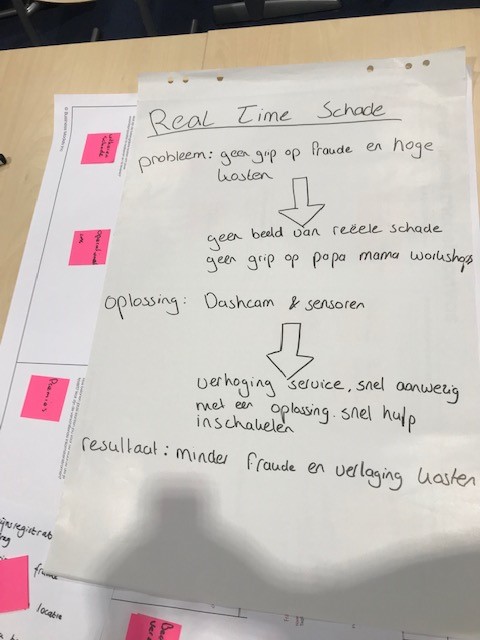 Real Time Schade
probleem: geen grip op fraude en hoge
kosten
geen beeld van reëele schade
geen grip op papa mama workshops
oplossing: Dashcam & sensoren
verhoging service, snel aanwezig
met een oplossing. snel hulp
inschakelen
resultaat: minder fraude en verlaging kosten
Premies
fraude
locatie